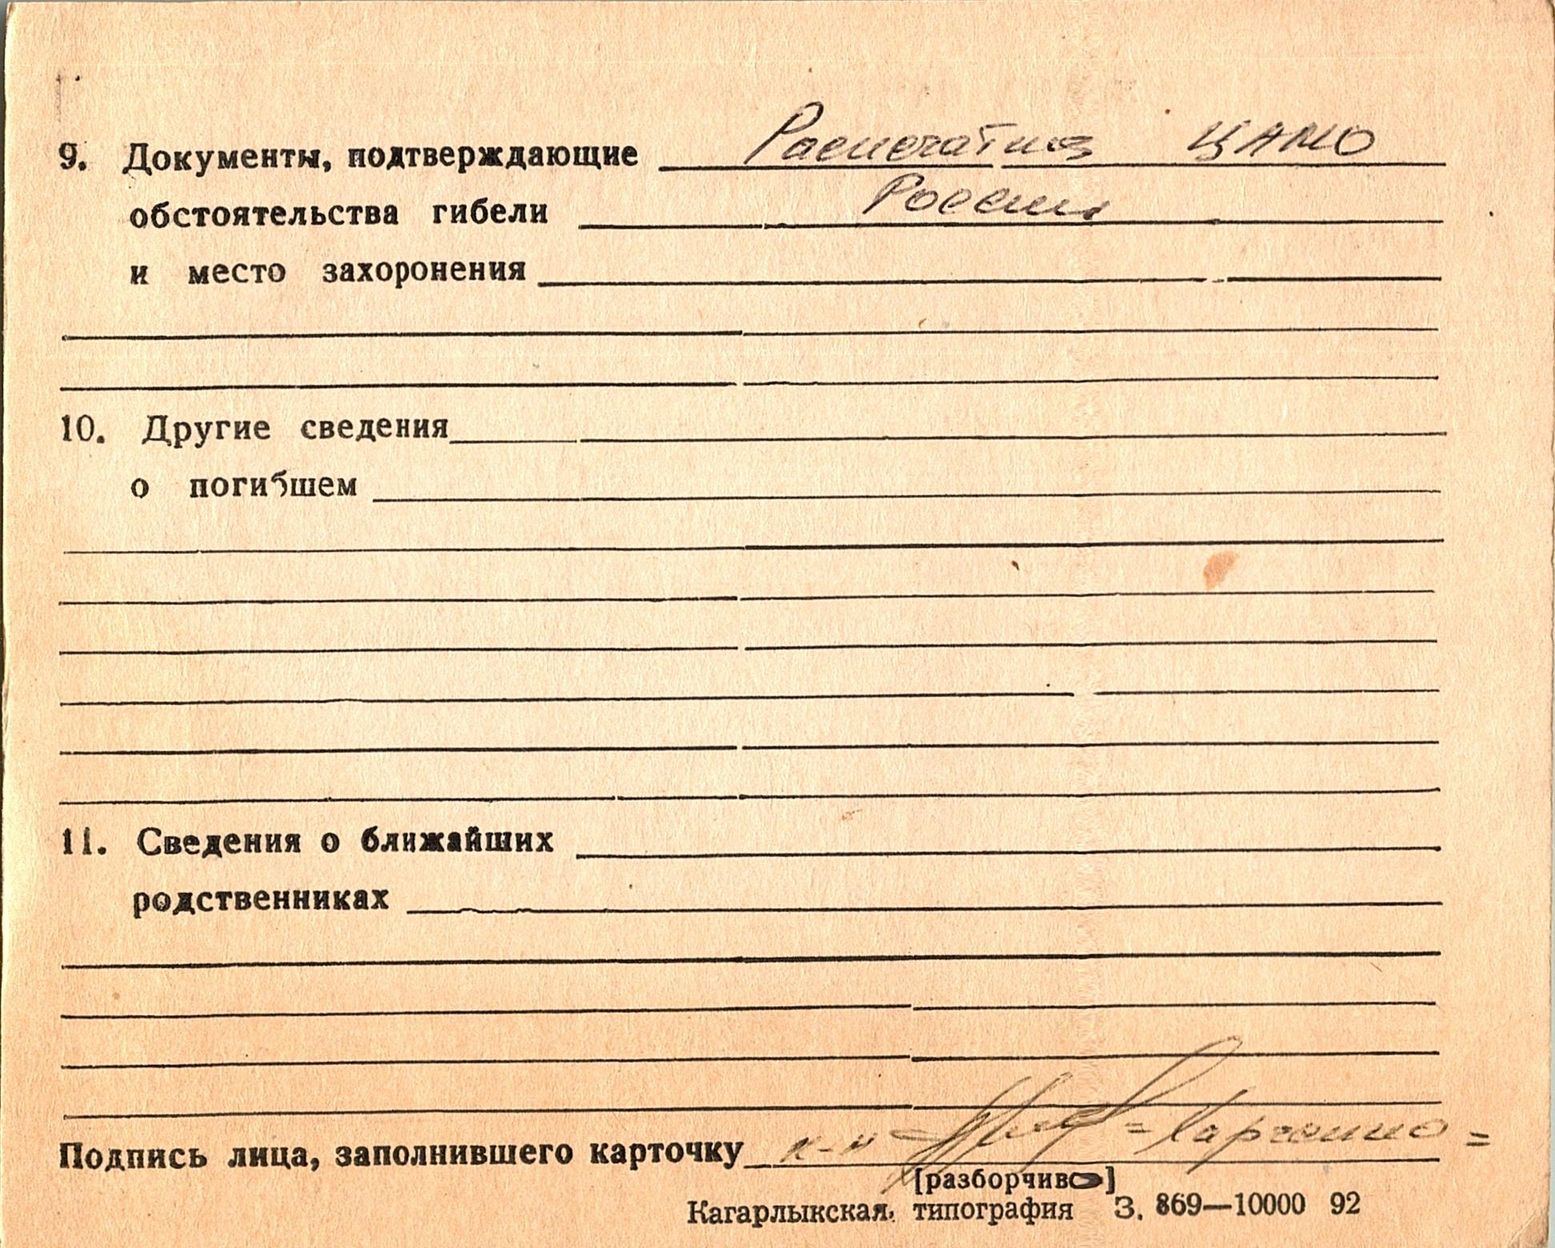 9. Документы, подтверждающие Распечатка ЦАМО
обстоятельства гибели России
и место захоронения
10. Другие сведения
о погибшем
11. Сведения о ближайших
родственниках
Подпись лица, заполнившего карточку к-н = Харченко =
[разборчиво]
Кагарлыкская, типография З. 869—10000 92